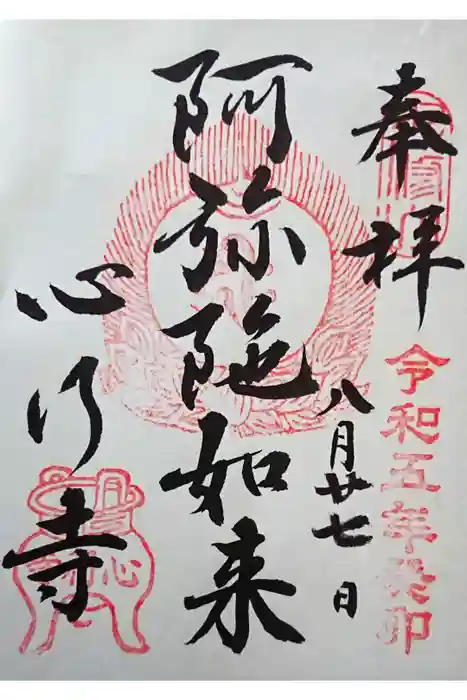 奉拝
令和五年癸卯
八月廿七日
阿弥陁如来
心行寺